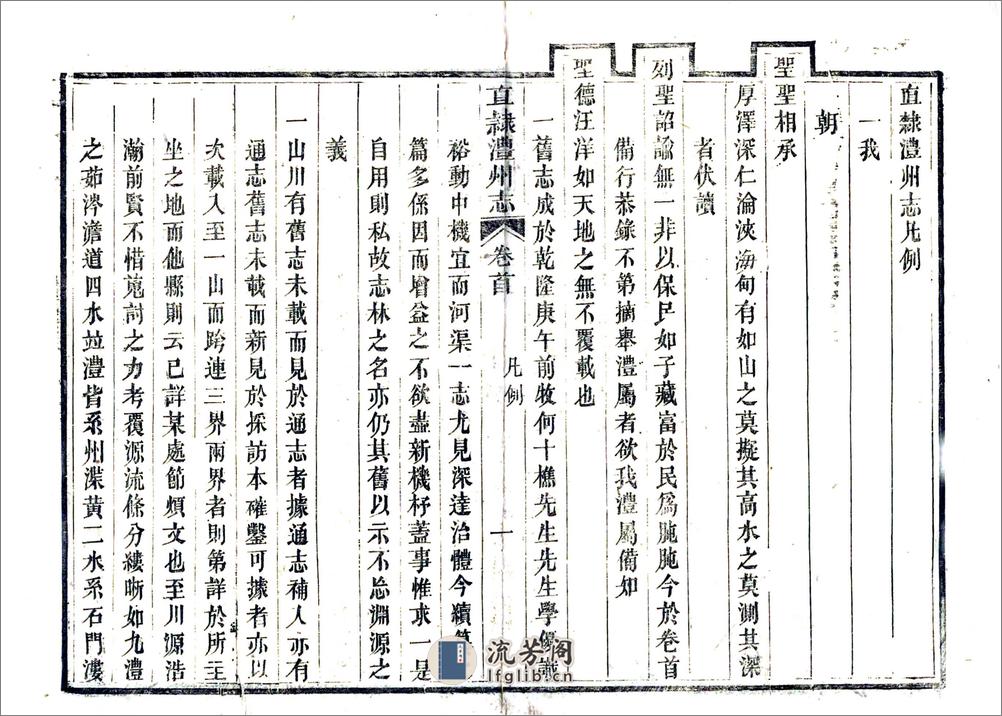 直隸澧州志凡例
一我
朝
聖聖相承
厚澤深仁淪浹海甸有如山之莫擬其高水之莫測其深
者伏讀
列聖詔諭無一非以保民如子藏富於民爲肫肫今於卷首
備行恭錄不第摘舉澧屬者欲我澧屬備知
聖德汪洋如天地之無不覆載也
一舊志成於乾隆庚午前牧何十樵先生先生學優
直隸澧州志 卷首 凡例 一
裕動中機宜而河渠一志尤見深達治體今續
篇多係因而增益之不欲盡新機杼蓋事惟求一是
自用則私故志林之名亦仍其舊以示不忘淵源之
義
一山川有舊志未載而見於通志者據通志補人亦有
通志舊志未載而新見於採訪本確鑿可據者亦以
次載入至一山而跨連三界兩界者則第詳於所至
坐之地而他縣則云已詳某處節煩文也至川源浩
瀚前賢不惜蒐討之力考覆源流條分縷晰如九澧
之茹涔澹道四水竝澧皆系州渫黃二水系石門漊
流芳阁
lfglib.cn